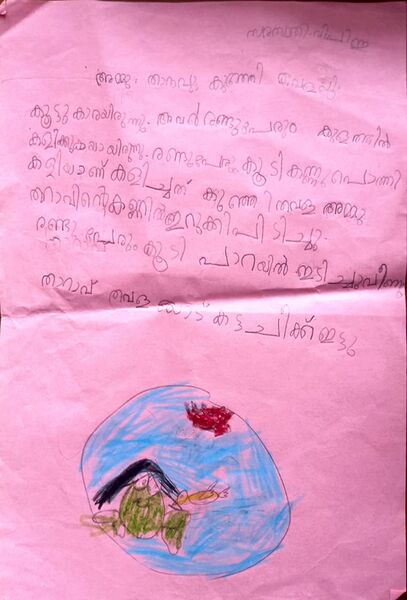 അമ്മു താറവു കുഞ്ഞി തവളയു
കൂട്ടുകാരയിരുന്നു. അവൻ രണ്ടുപേരും കുളത്തിൽ
കളിക്കുകയായിരുന്നു. രണ്ടുപേരു കൂടി കണ്ണു പൊത്തി
കളിയാണ് കളിച്ചത് കുഞ്ഞി തവള അമ്മു
താറാവിന്റെ കണ്ണിൽ ഇറുക്കി പിടിച്ചു.
രണ്ടു പേരും കൂടി പാറയിൽ ഇടിച്ചു വീണു
താറാവ് തവള ഇട്ടു